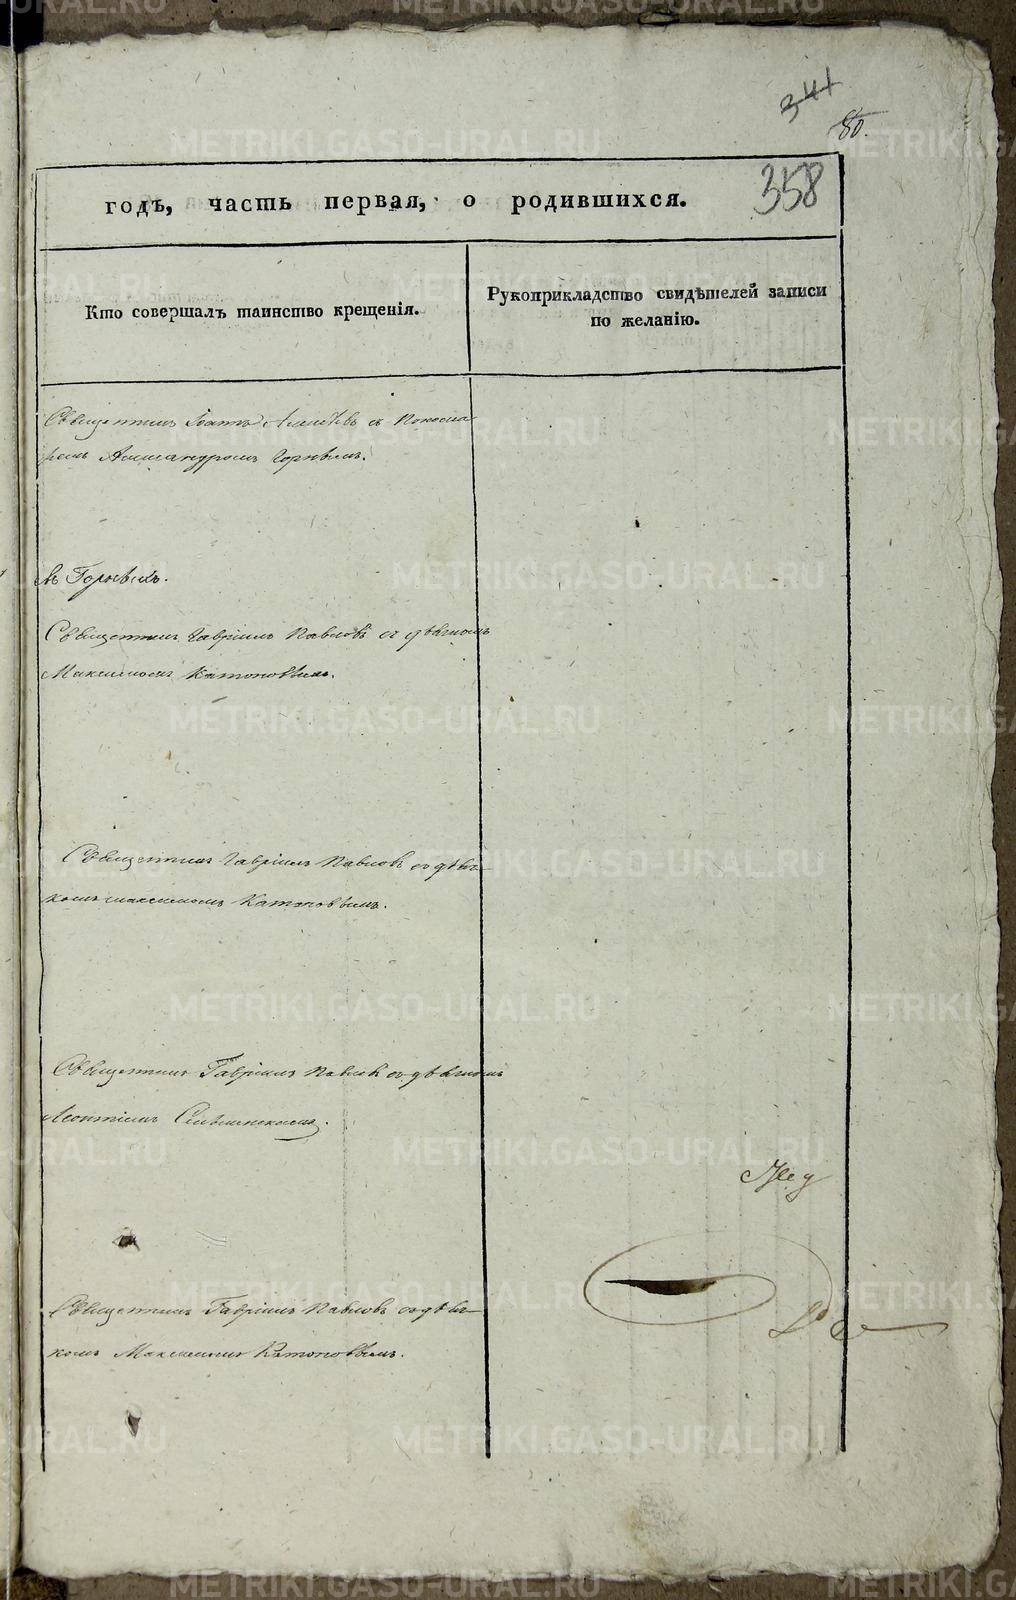 341
80.
358
годъ, часть первая, о родившихся.
Кто совершалъ таинство крещенія.
Рукоприкладство свидѣтелей записи
по желанію.
Священникъ Іоаннъ с Поно
ремъ Александромъ
въ
Священникъ Гавріилъ Павловъ съ дьячкомъ
Максимомъ Катоновымъ.
Священникъ Гавріилъ Павловъ съ дьяч
комъ Максимомъ Катоновымъ.
Священникъ Гавріилъ Павловъ съ дьячкомъ
Леонтіемъ
Священникъ Гавріилъ Павловъ съ дьяч
комъ Максимомъ Катоновымъ.
METRIKI.GASO-URAL.RU